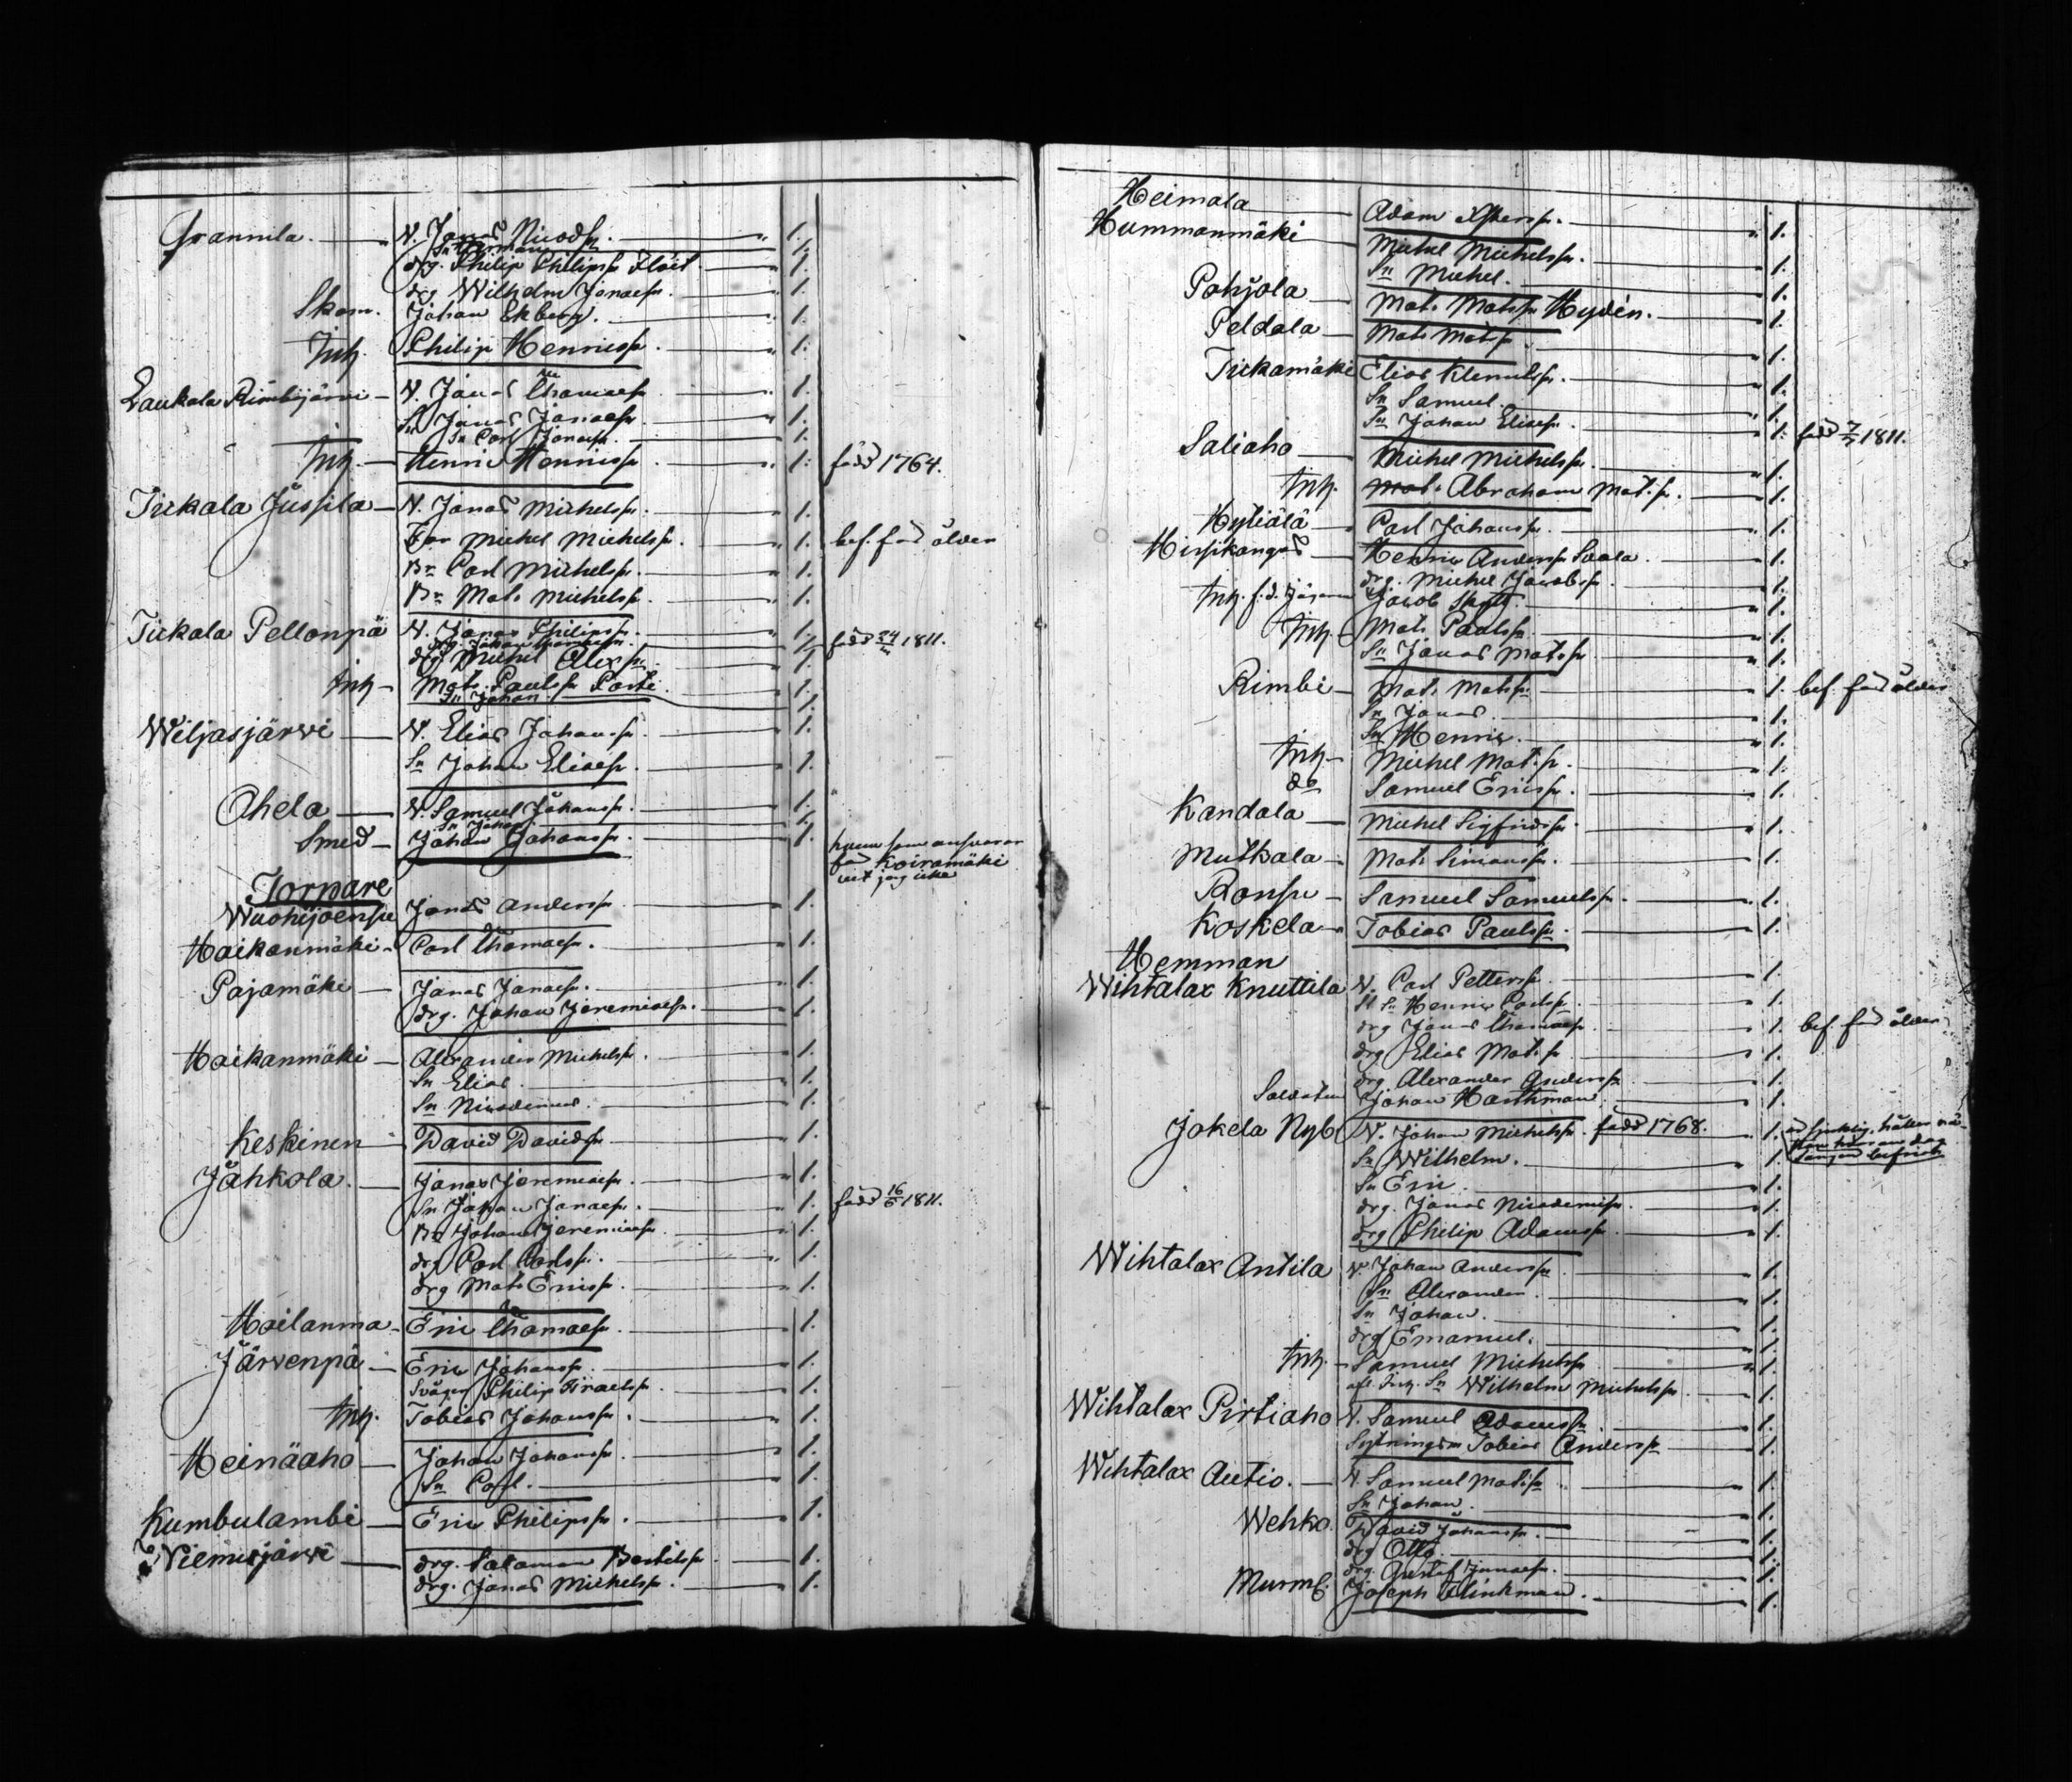 Grannila. N. Jonas Nicodsn. 1.
Sn Herman 1.
drg. Philip Philipssn Flöit 1.
drg Wilhelm Jonaesn. 1.
Skom. Johan Ekberg. 1.
Inh. Philip Henricssn. 1.
Laukala Rimbijärvi N. Jonas Thomaesn 1.
Sn Jonas Jonaesn 1.
Sn Carl Jonaesn. 1.
Inh. Henric Henricssn. 1. född 1764.
Tickala Jussila N. Jonas Michelssn. 1.
Far Michel Michelssn. 1. bef. för ålder
Br Carl Michelssn. 1.
Br Mats Michelssn. 1.
Tickala Pellonpä N. Jonas Philipssn. 1.
drg. Johan 1. född 24 1811.
drg. Michel Alexsn. 1.
Inh Mats Paulssn Porti. 1.
Sn Johan 1.
Wiljasjärwi N. Elias Johanssn. 1.
Sn Johan Eliaesn. 1.
Ahela N. Samuel Johanssn. 1.
Sn Johan 1.
Smed Johan Johanssn. 1. hvem som ansvarar
för Koiramäki
vet jag icke
Torpare
Wuohijoensu Jonas Anderssn 1.
Haikanmäki Carl Thomaesn. 1.
Pajamäki Jonas Jonaesn. 1.
drg. Johan Jeremiaesn. 1.
Haikanmäki Alexander Michelssn. 1.
Sn Elias. 1.
Sn Nicodemus. 1.
Keskinen David Davidssn 1.
Jåhkola. Jonas Jeremiaesn. 1.
Sn Johan Jonaesn. 1. född 16/6 1811.
Br Johan Jeremiaesn 1.
drg Carl Carlssn. 1.
drg Mats Ericssn. 1.
Hoilanma Eric Thomaesn. 1.
Järvenpä Eric Johanssn. 1.
Svåger Philip Israelssn. 1.
Inh. Tobias Johanssn. 1.
Heinäaho Johan Johanssn. 1.
Sn Carl. 1.
Kumbulambi Eric Philipssn. 1.
Niemisjärvi drg. Salomon Bertilssn. 1.
drg. Jonas Michelssn. 1.
Heimala Adam 1.
Hummonmäki Michel Michelssn. 1.
Sn Michel. 1.
Pohjola Mats Matssn Hydén. 1.
Peldola Mats Matssn 1.
Tickamäki Elias Klemetssn. 1.
Sn Samuel. 1.
Sn Johan Eliaesn. 1. född 7/7 1811.
Saliaho Michel Michelssn. 1.
Inh. Mats Abraham Matssn. 1.
Hytiälä Carl Johanssn. 1.
Hirsikangas Henric Anderssn Svala. 1.
drg. Michel Jacobssn. 1.
Inh. f.d. Jägaren Jacob Skytt. 1.
Inh. Mats Paulssn. 1.
Sn Jonas Matssn 1.
Rimbi Mats Matssn 1. bef. för ålder
Sn Jonas. 1.
Sn Henric. 1.
Inh. Michel Matssn. 1.
do Samuel Ericssn. 1.
Kandala Michel Sigfridssn. 1.
Mutkala Mats Simonssn. 1.
Ronsu Samuel Samuelssn. 1.
Koskela Tobias Paulssn. 1.
Hemman
Wihtalax Knuttila N. Carl Petterssn. 1.
Sn Henric Carlssn. 1.
drg Jonas Thomaesn. 1. bef. för ålder
drg Elias Matssn 1.
drg. Alexander Anderssn 1.
Soldaten Johan Harthman. 1.
Jokela Nyb. N. Johan Michelssn. född 1768. 1. är sjuklig, håller
Sn Wilhelm. 1.
Sn Eric. 1.
drg. Jonas Nicodemissn. 1.
drg Philip Adamssn. 1.
Wihtalax Antila N. Johan Anderssn 1.
Sn Alexander. 1.
Sn Johan. 1.
drg Emanuel. 1.
Inh. Samuel Michelssn 1.
Inh. Sn Wilhelm Michelssn 1.
Wihtalax Pirtiaho N. Samuel Adamssn 1.
Sytningsm Tobias Anderssn 1.
Wihtalax Autio. N Samuel Matssn 1.
Sn Johan. 1.
Wehko. David Johanssn. 1.
drg Otto. 1.
drg. Gustaf Jonaesn. 1.
Murm. Joseph Klinkman. 1.